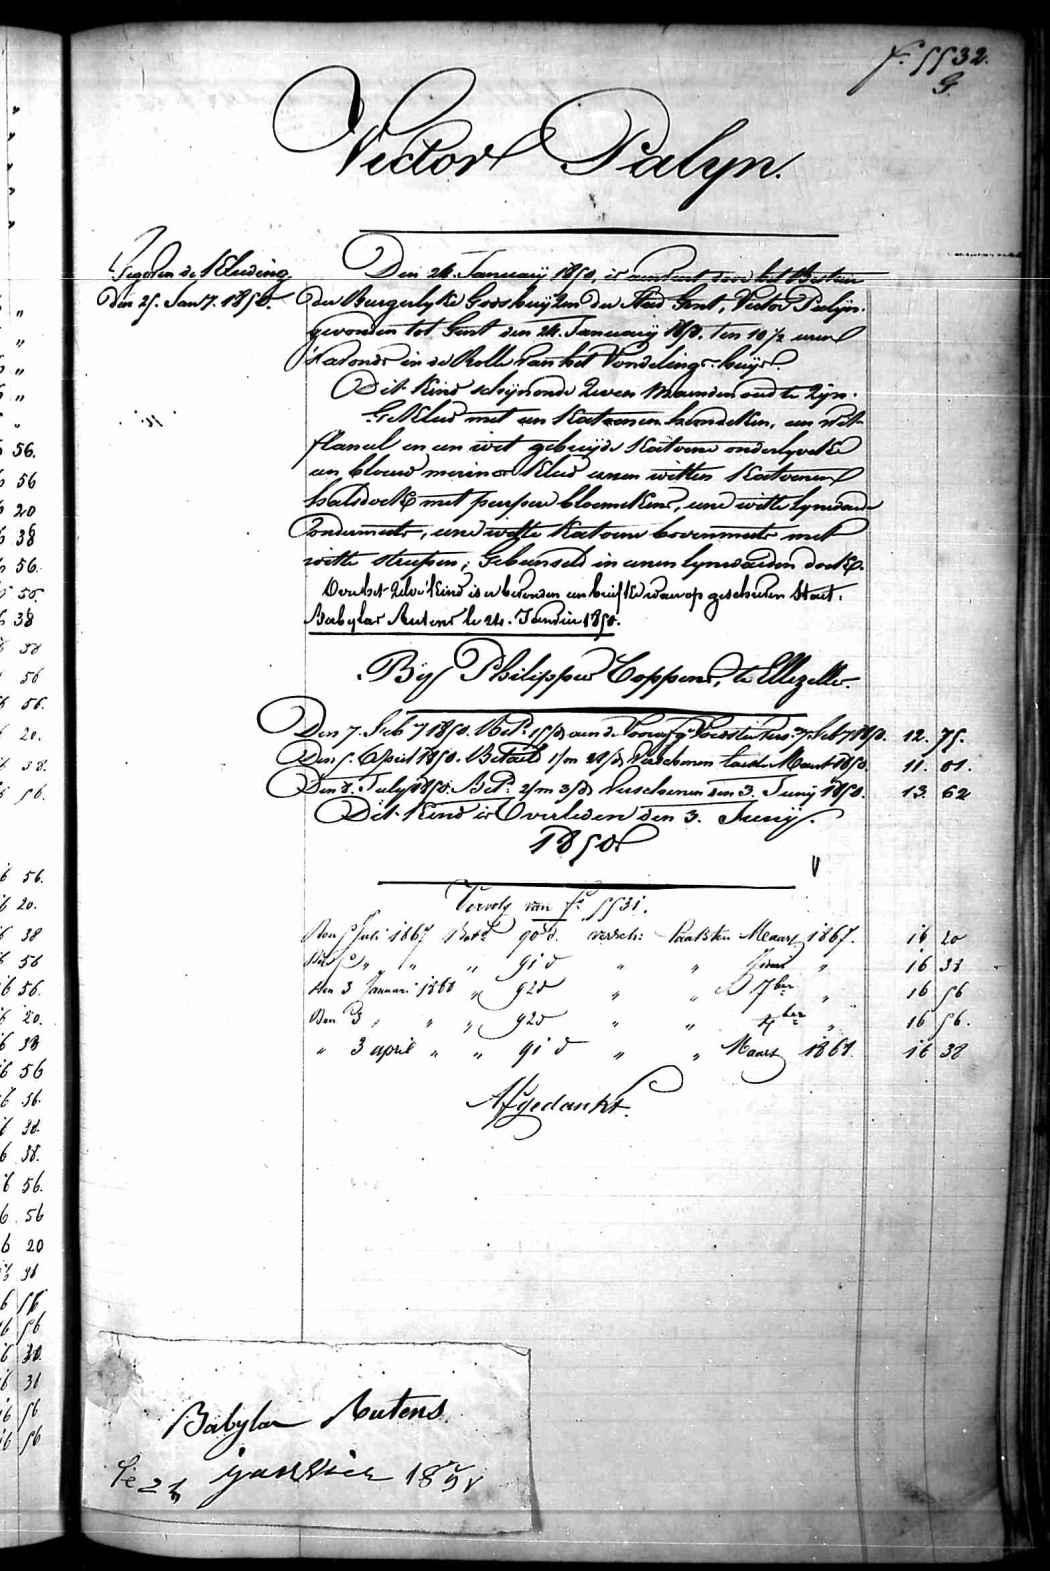 fo. 5532.
G.
Victor Palyn.
Gegeven de Kleeding
Den 25. Jan 7. 1850.
Den 24. Januarij 1850, is aenveert door het Bestier
der Burgerlyke Godshuyzen der Stad Gent, Victor Palijn.
gevonden tot Gent den 24. Januarij 1850. ten 10 1/2 uren
's avonds in de Rolle van het Vondelings-huys.
Dit Kind schijnende Zeven Maenden oud te Zijn.
Gekleed met een Katoenen hemdeken, een wit
flaneel en een wit gebreijde Katoene onderlyveke
een blouw merinos kleed eenen witten Katoenen
halsdoek met purpere bloemekens, eene witte lynwaede
ondermuts, eene witte Katoene bovenmuts met
witte strepen; Gebunseld in eenen lynwaeden doek.
Over het Zelve Kind is er bevonden een briefke waer op geschreven Staet.
Babylas Rutens le 24. Janvier 1850.
Bij Philippus Coppens, te Ellezelle.
Den 7. Feb 7 1850. Bet. 15/d aen de Voorafg. Voedster vers. 7. Feb 7 1850. 12. 75.
Den 5. April 1850. Betaeld 1/m 22/d Verschenen laeste Maart 1850. 11. 01.
Den 8. July 1850. Bet. 2/m 3/d Verschenen den 3. Junij 1850. 13. 62
Dit Kind is Overleden den 3. Junij.
1850
Vervolg van fo. 5531.
Den 5 Juli 1867 Bet. 90 d. versch: laatsten Maart 1867. 16 20
" " " 91 d " " Juni " 16 38
Den 3 Januari 1868 " 92 d " " 7ber " 16 56
Den 3 " " " 92 d " " Xber " 16 56.
" 3 april " " 91 d " " Maart 1868. 16 38
Afgedankt.
Babylas Rutens
le 24 janvier 1850
56.
56
20
38
56.
56.
38
38
56
56.
20.
38.
56.
56.
20.
38
56
56.
20.
38
56
56.
38.
38.
56.
56
20
38
56
56
20.
38
56
56